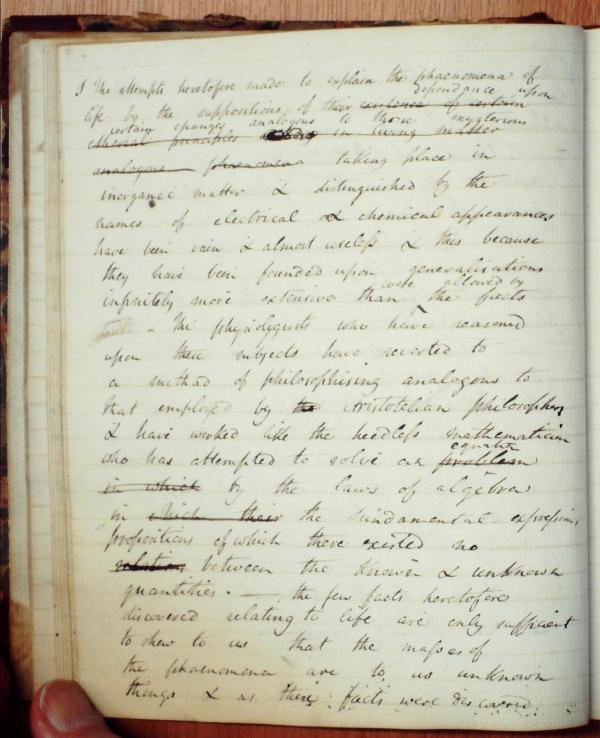 1 The attempts heretofore made to explain the phaenomena of
dependance upon
life by the suppositions of their existence of certain
certain changes analogous to those mysterious
etherial principles in living matter
analogous phaenomena taking place in
inorganic matter & distinguished by the
names of electrical & chemical appearances
have been vain & almost useless & this because
they have been founded upon generalisations
were allowed by
infinitely more extensive than the facts
– The physiologists who have reasoned
upon these subjects have reverted to
a method of philosophising analogous to
that employed by the aristotelian philosophers
& have worked like the heedless mathematician
equation
who has attempted to solve an problem
in which by the laws of algebra
in which their the fundamental expressions
propositions of which there existed no
relations between the known & unknown
quantities. — the few facts heretofore
discovered relating to life are only sufficient
to shew to us that the masses of
the phaenomena are to us unknown
things & as these facts were discovered